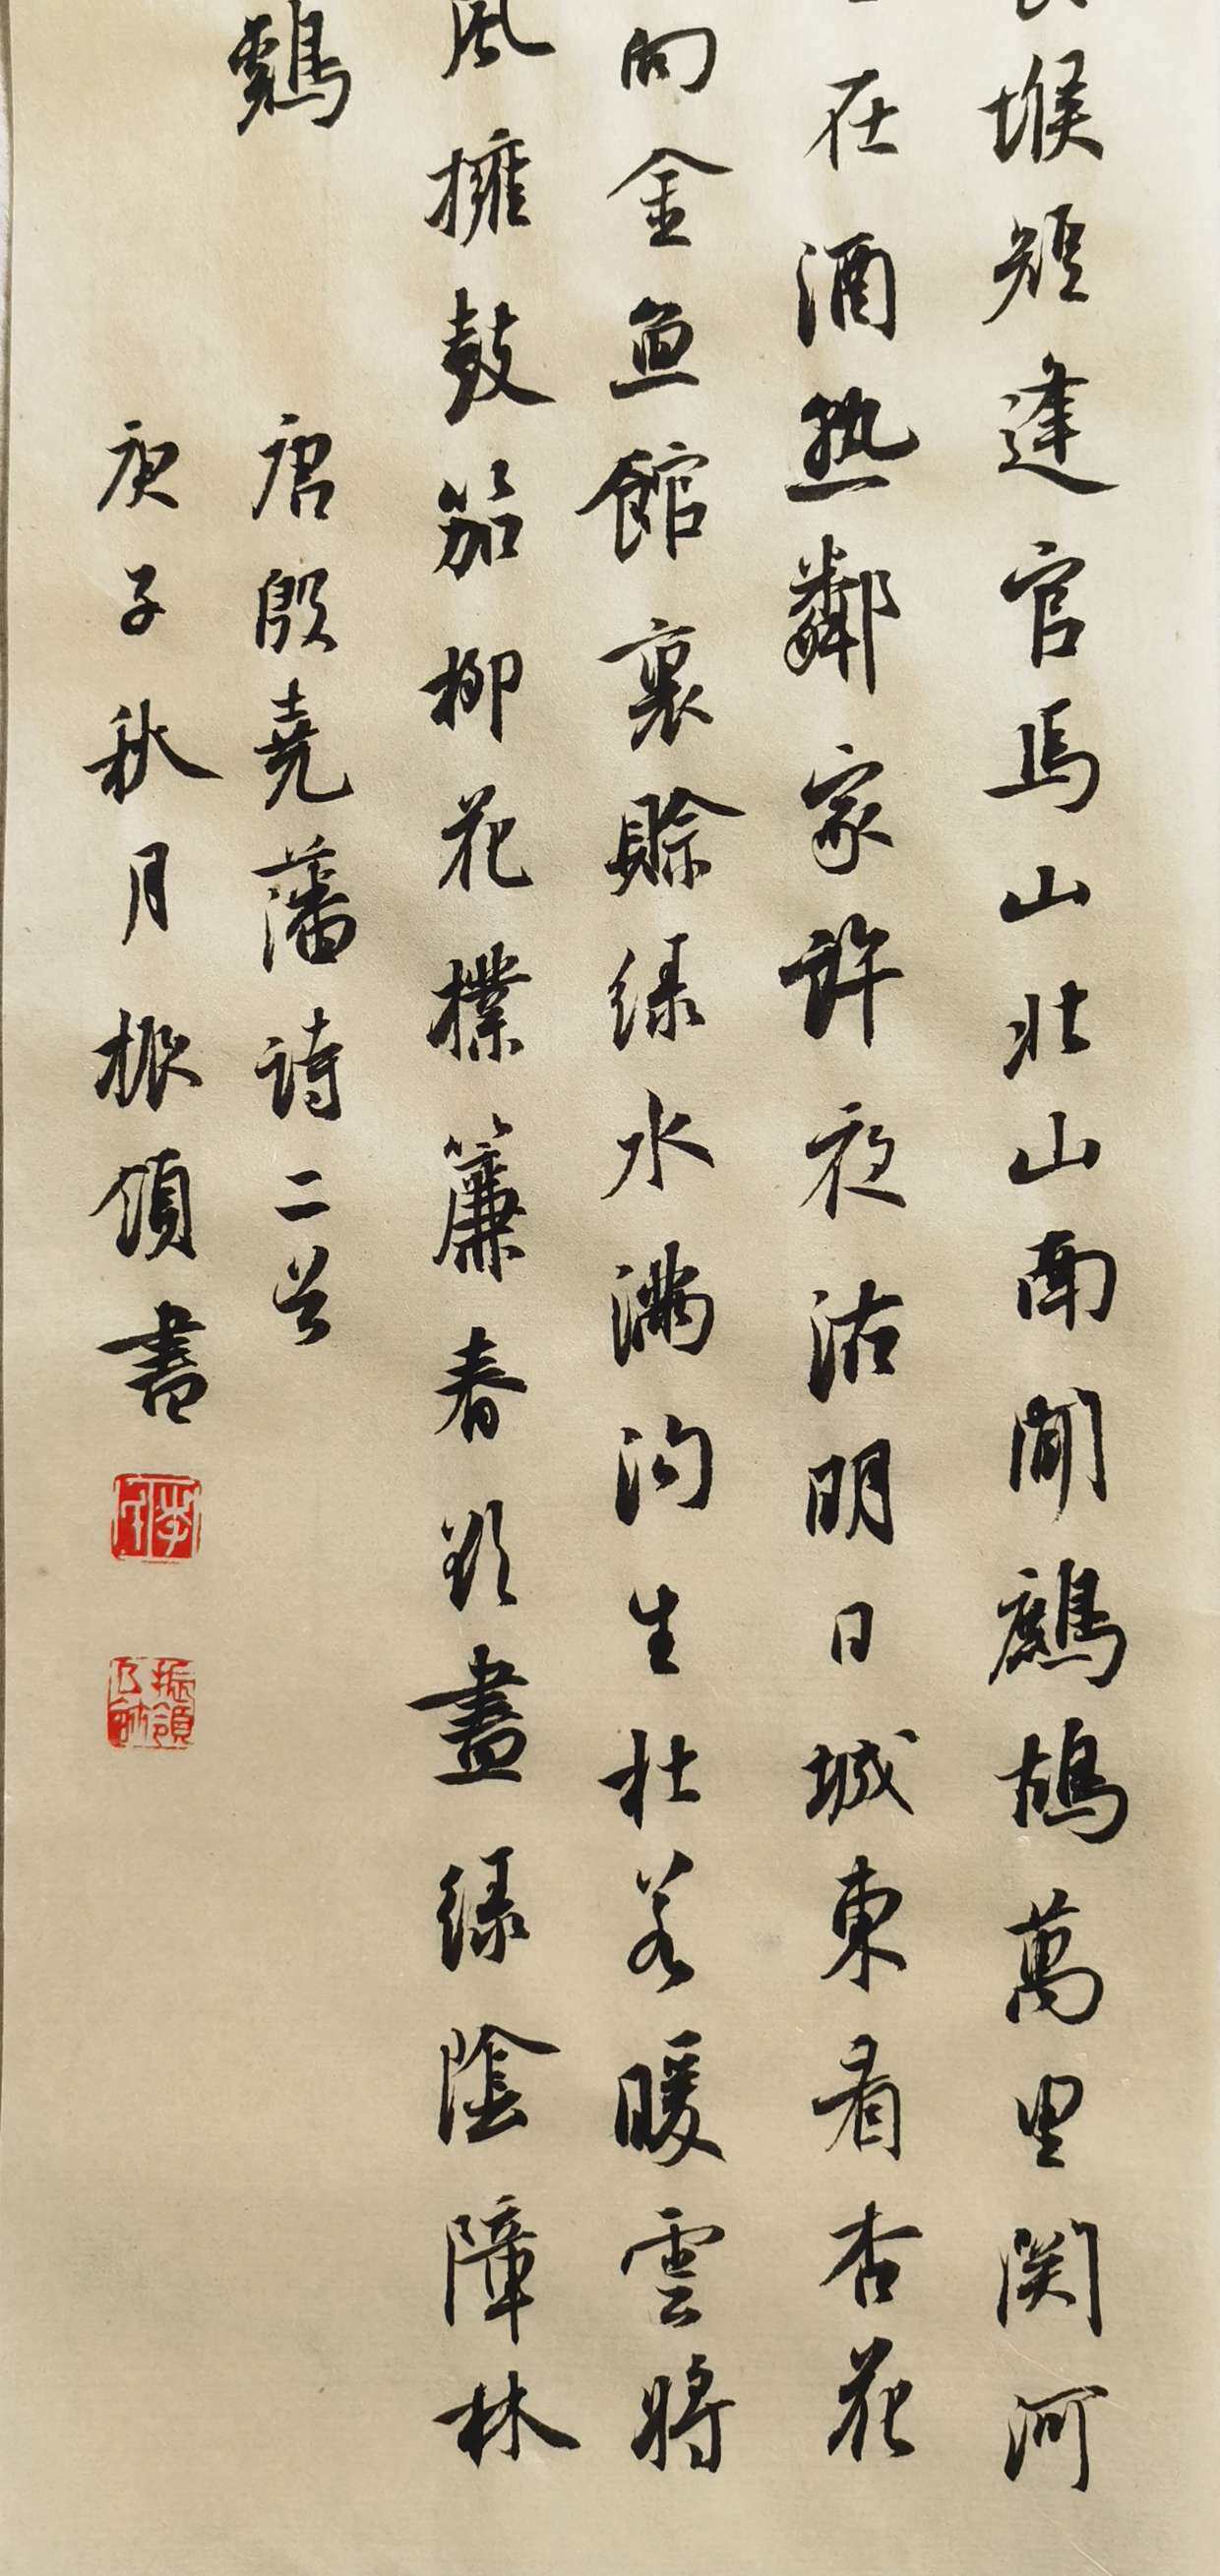 堠短逢官馬山北山南聞鷓鴣萬里関河
在酒热鄰家許夜沽明日城東看杏花
向金魚館裏賒緑水滿溝生杜若暖雲將
風擁鼓笳柳花撲簾春欲盡緑陰障林
鷄
唐殷堯藩詩二首
庚子秋月振領書
振領